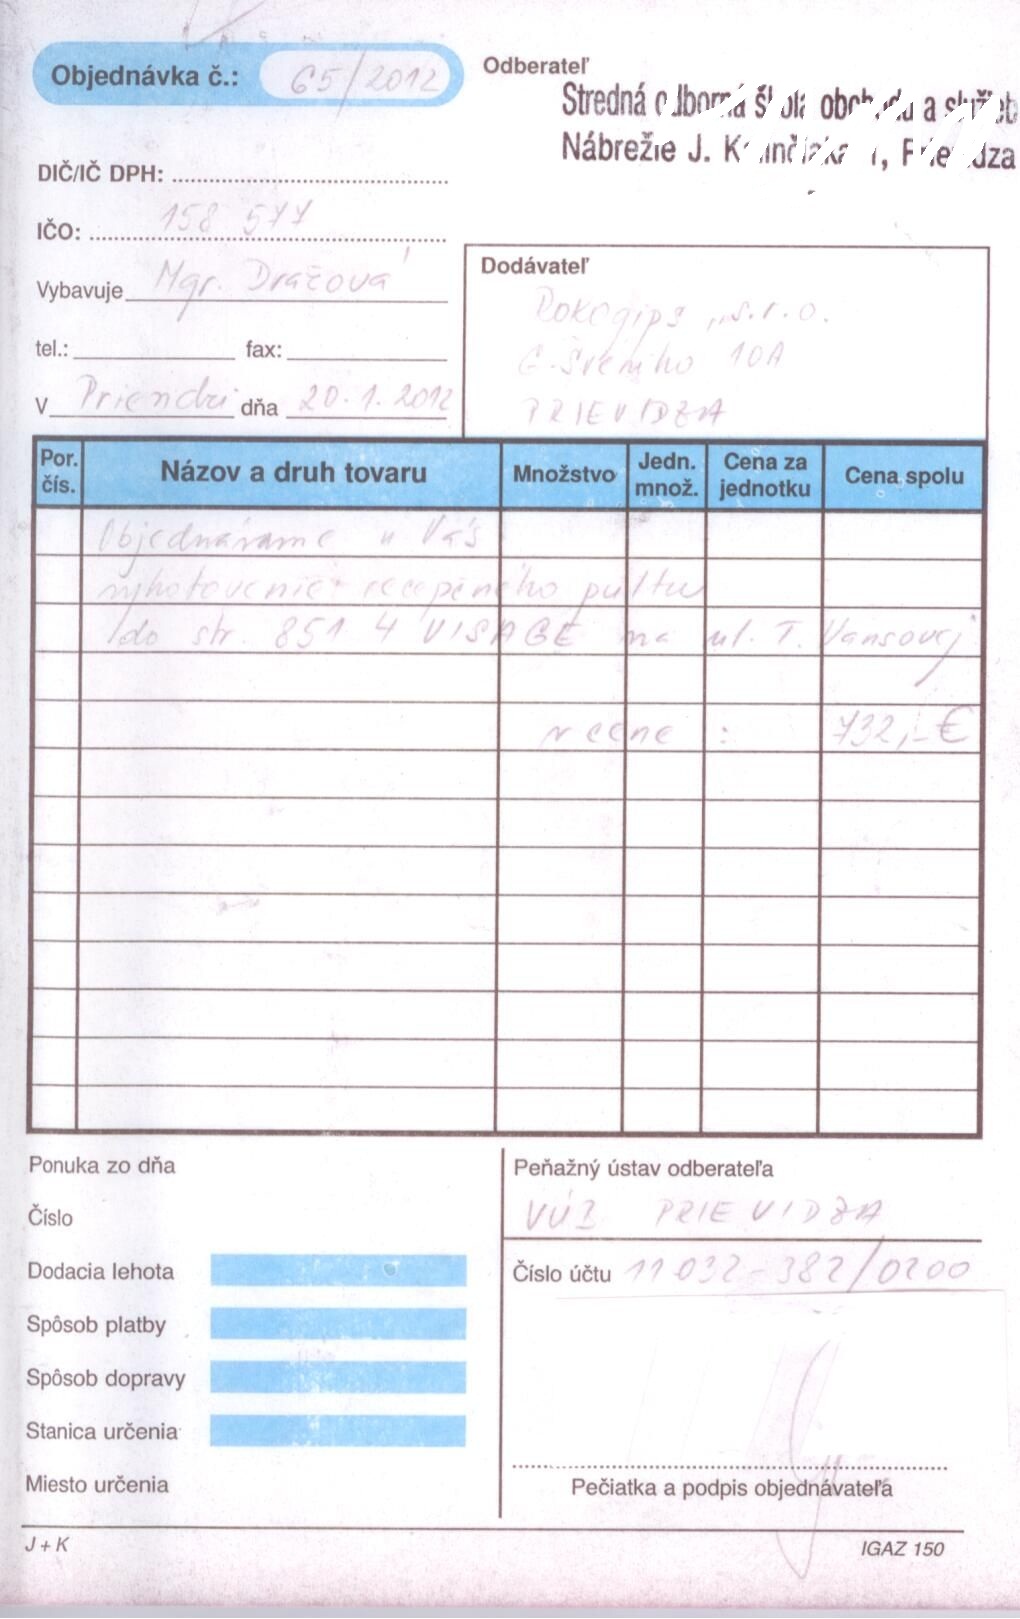 Objednávka č.: 65/2012
Odberateľ
Stredná odborná škola obchodu a služieb
Nábrežie J. Kalinčiaka 1, Prievidza
DIČ/IČ DPH:
IČO: 158 577
Vybavuje Mgr. Dražová
tel.: fax:
V Prievidzi dňa 20.1.2012
Dodávateľ
Rokogips, s.r.o.
G. Švéniho 10A
PRIEVIDZA
Por. čís. Názov a druh tovaru Množstvo Jedn. množ. Cena za jednotku Cena spolu
Objednávame u Vás
vyhotovenie recepčného pultu
do str. 851 4 VISAGE na ul. T. Vansovej
v cene : 732,-€
Ponuka zo dňa
Číslo
Dodacia lehota
Spôsob platby
Spôsob dopravy
Stanica určenia
Miesto určenia
Peňažný ústav odberateľa
VÚB PRIEVIDZA
Číslo účtu 11032-382/0200
Pečiatka a podpis objednávateľa
J + K
IGAZ 150